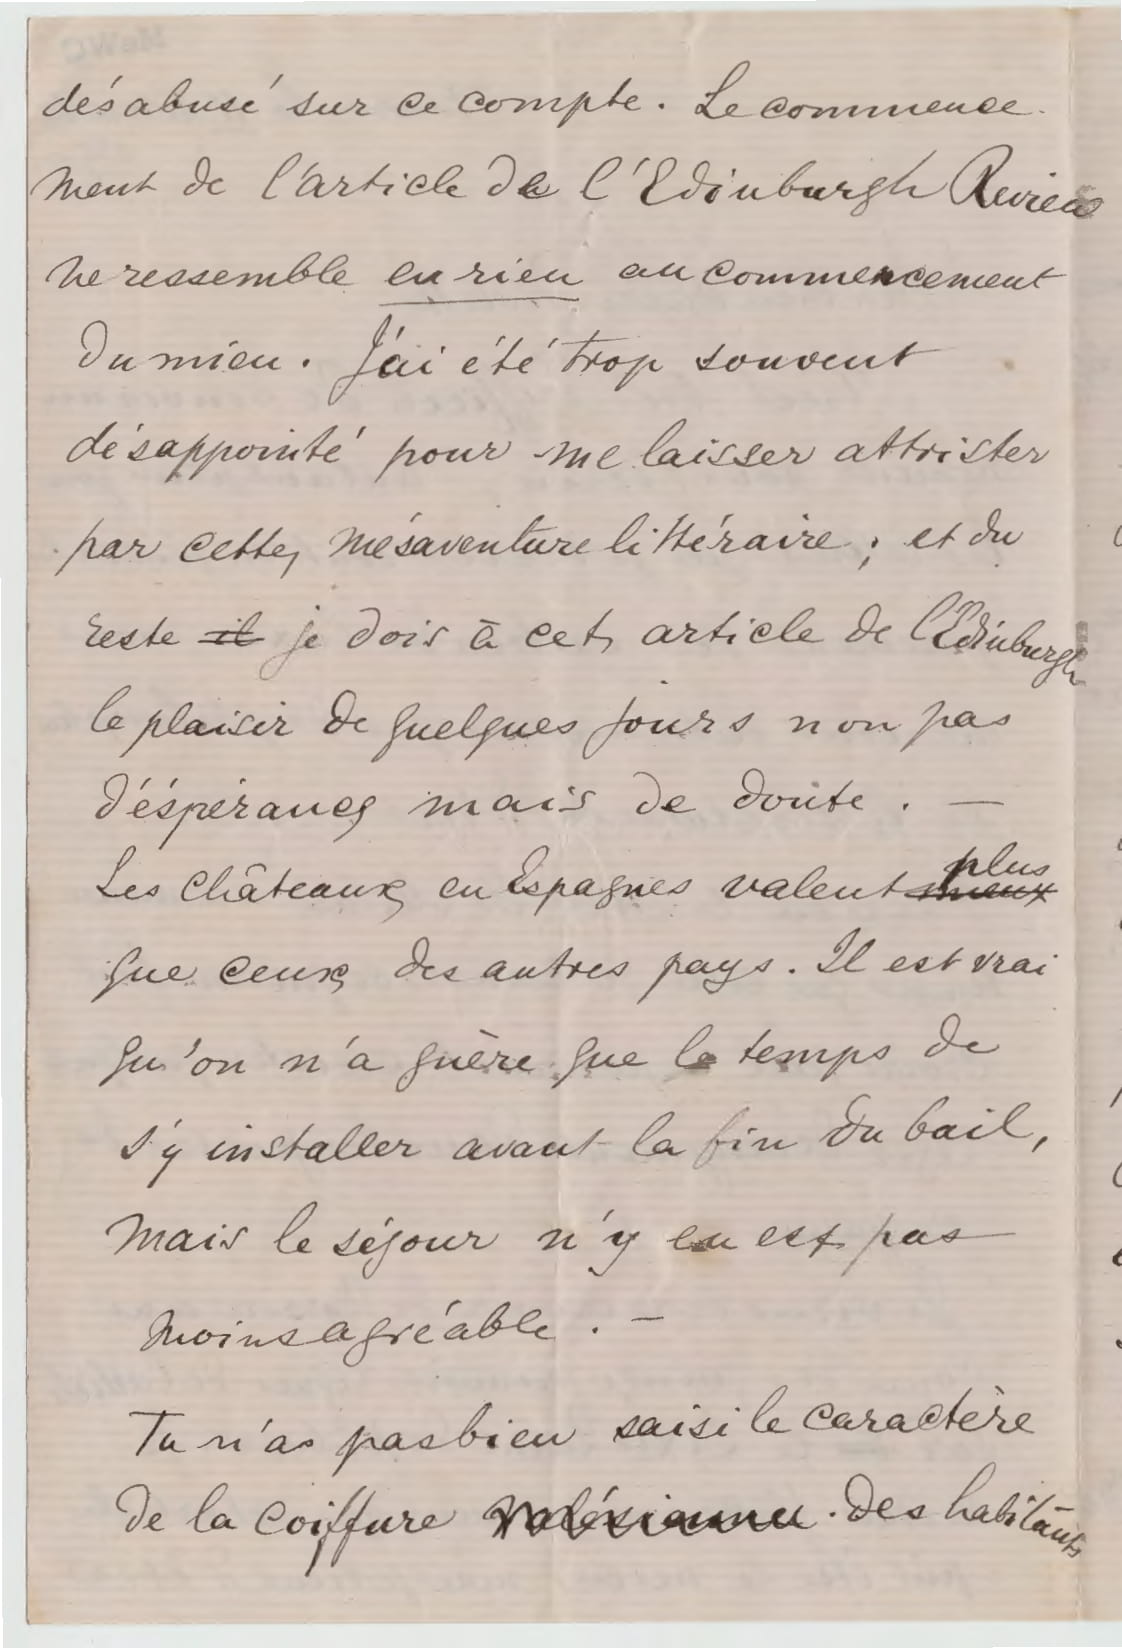 désabusé sur ce compte. Le commence-
ment de l'article de l'Edinburgh Review
ne ressemble en rien au commencement
du mien. J'ai été trop souvent
désappointé pour me laisser attrister
par cette mésaventure littéraire ; et du
reste il je dois à cet article de l'Edinburgh
le plaisir de quelques jours non pas
d'éspérance mais de doute. —
Les Châteaux en Espagnes valent mieux plus
que ceux des autres pays. Il est vrai
qu'on n'a guère que le temps de
s'y installer avant la fin du bail,
mais le séjour n'y en est pas
moins agréable. —
Tu n'as pas bien saisi le caractère
de la coiffure valésienne. des habitants